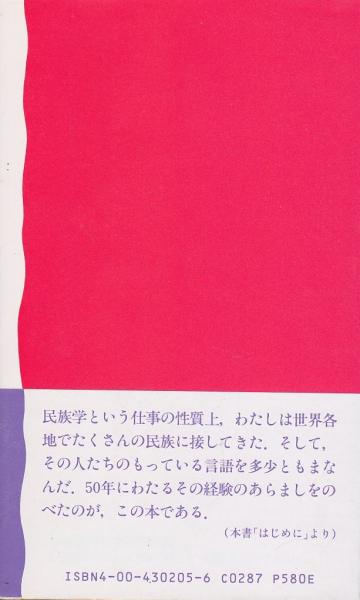 民族学という仕事の性質上，わたしは世界各
地でたくさんの民族に接してきた．そして，
その人たちのもっている言語を多少ともまな
んだ．50年にわたるその経験のあらましをの
べたのが，この本である．
（本書「はじめに」より）
ISBN4-00-430205-6 C0287 P580E